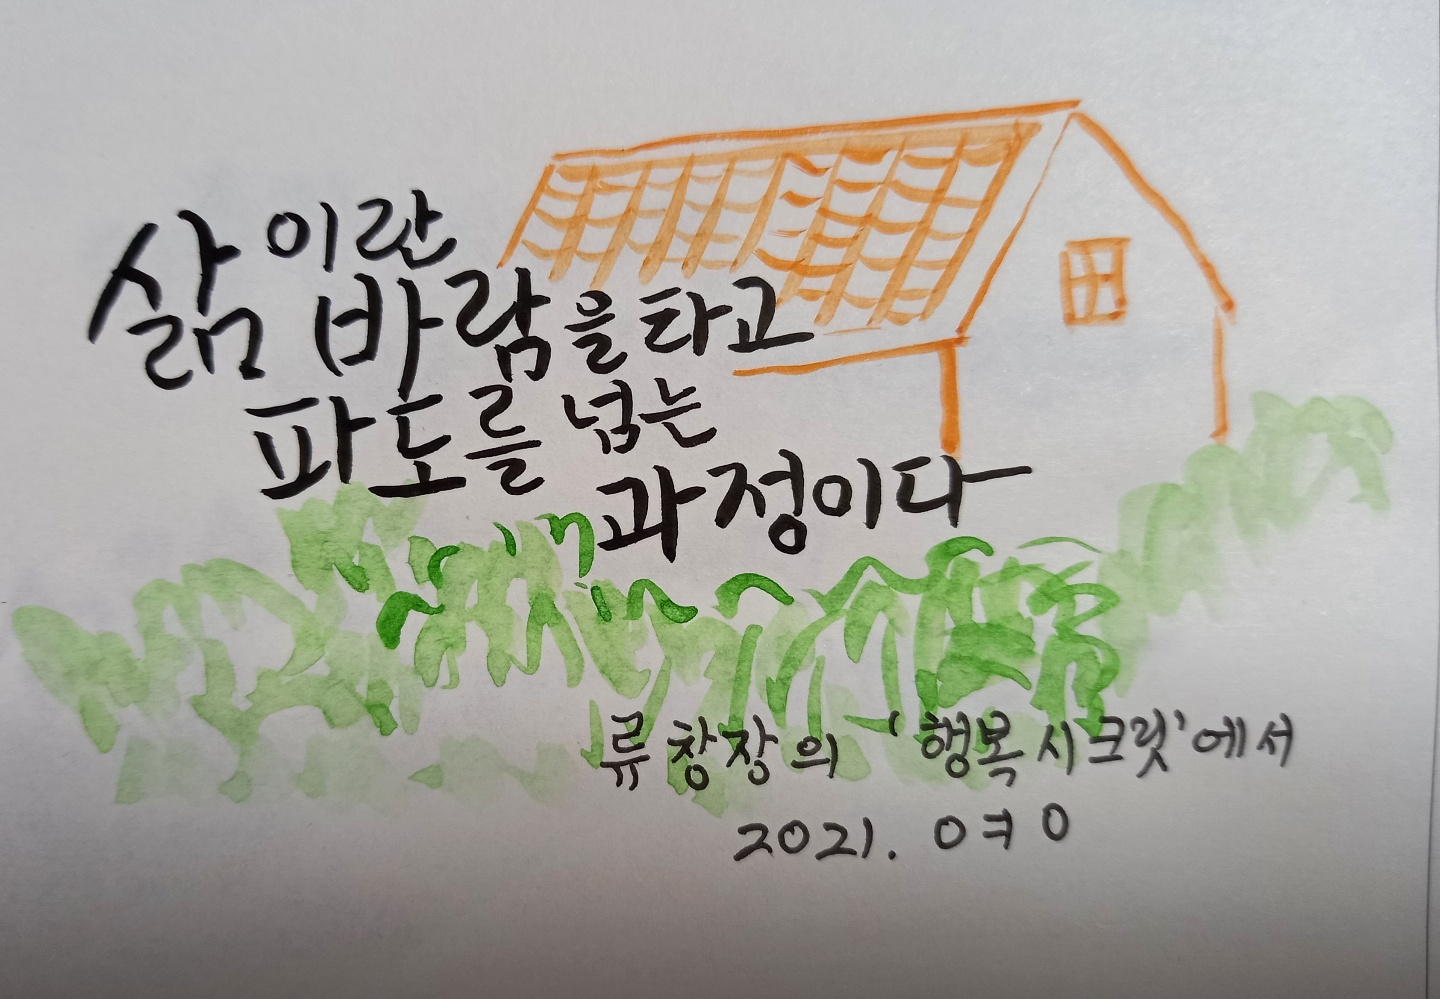 삶이란
바람을 타고
파도를 넘는
과정이다
류창장의 '행복시크릿'에서
2021. ㅇㅕㅇ